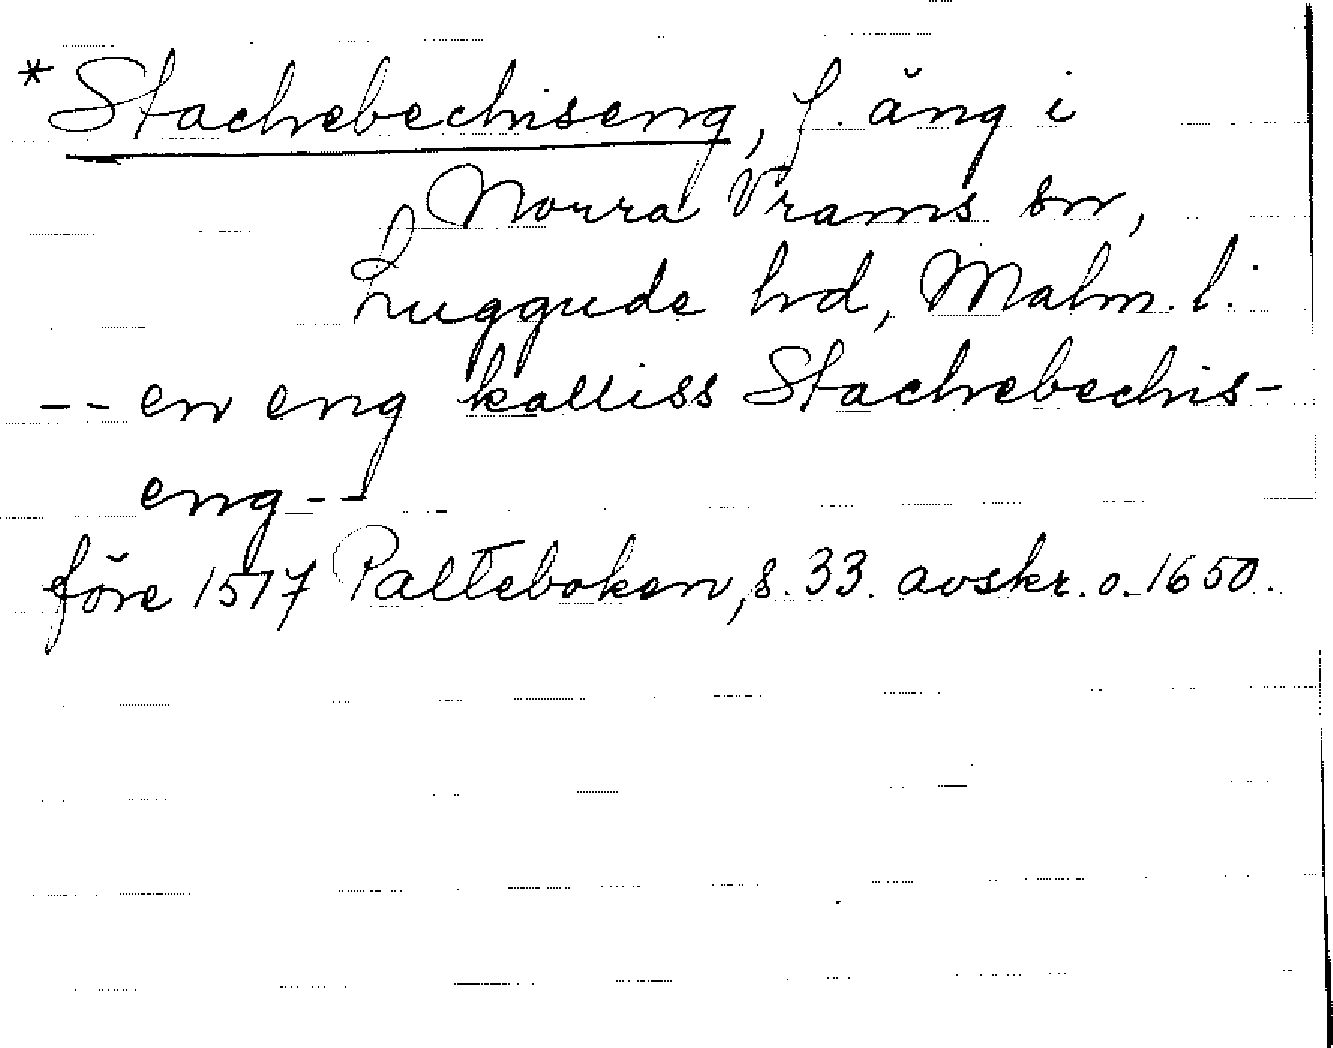 *Stachebechiseng, f. äng i
Norra Vrams sn,
Luggude hd, Malm. l.
-- en eng kalliss Stachebechis-
eng--
före 1517 Palteboken, s. 33. avskr. o. 1650.